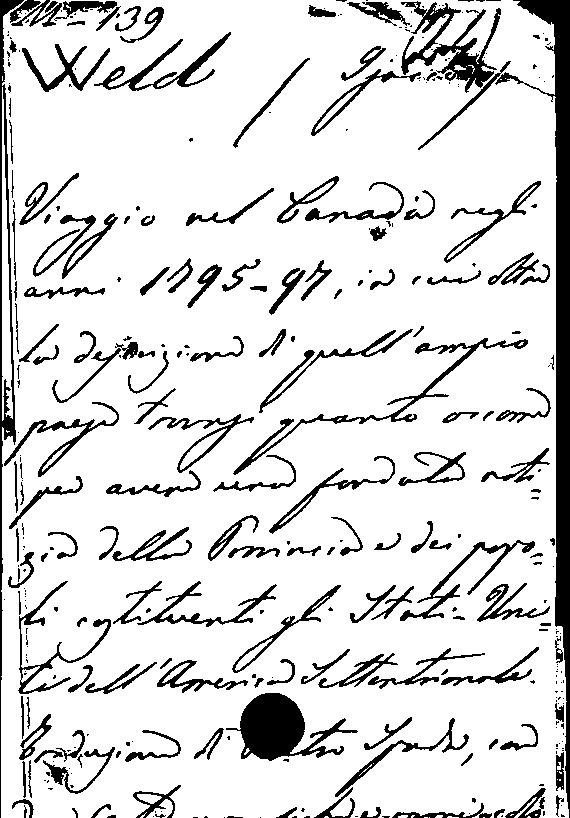 M-139
Weld / (24)
Viaggio nel Canadà negli
anni 1795-97, in cui oltre
la descrizione di quell'ampio
paese trovasi quanto occorre
per avere una fondata noti=
zia della Provincia e dei popo=
li costituenti gli Stati-Uni=
ti dell'America Settentrionale.
Traduzione di Pietro Spada, con